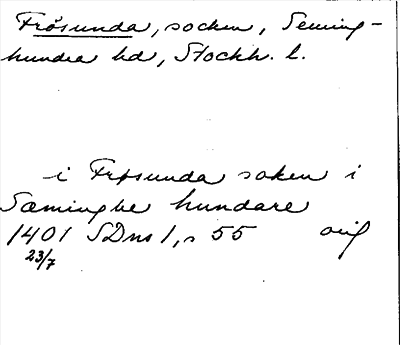 Frösunda, socken, Seming-
hundra hd, Stockh. l.
i Frøsunda soken i
Sæminghe hundare
1401 SDns 1, s 55 orig
23/7